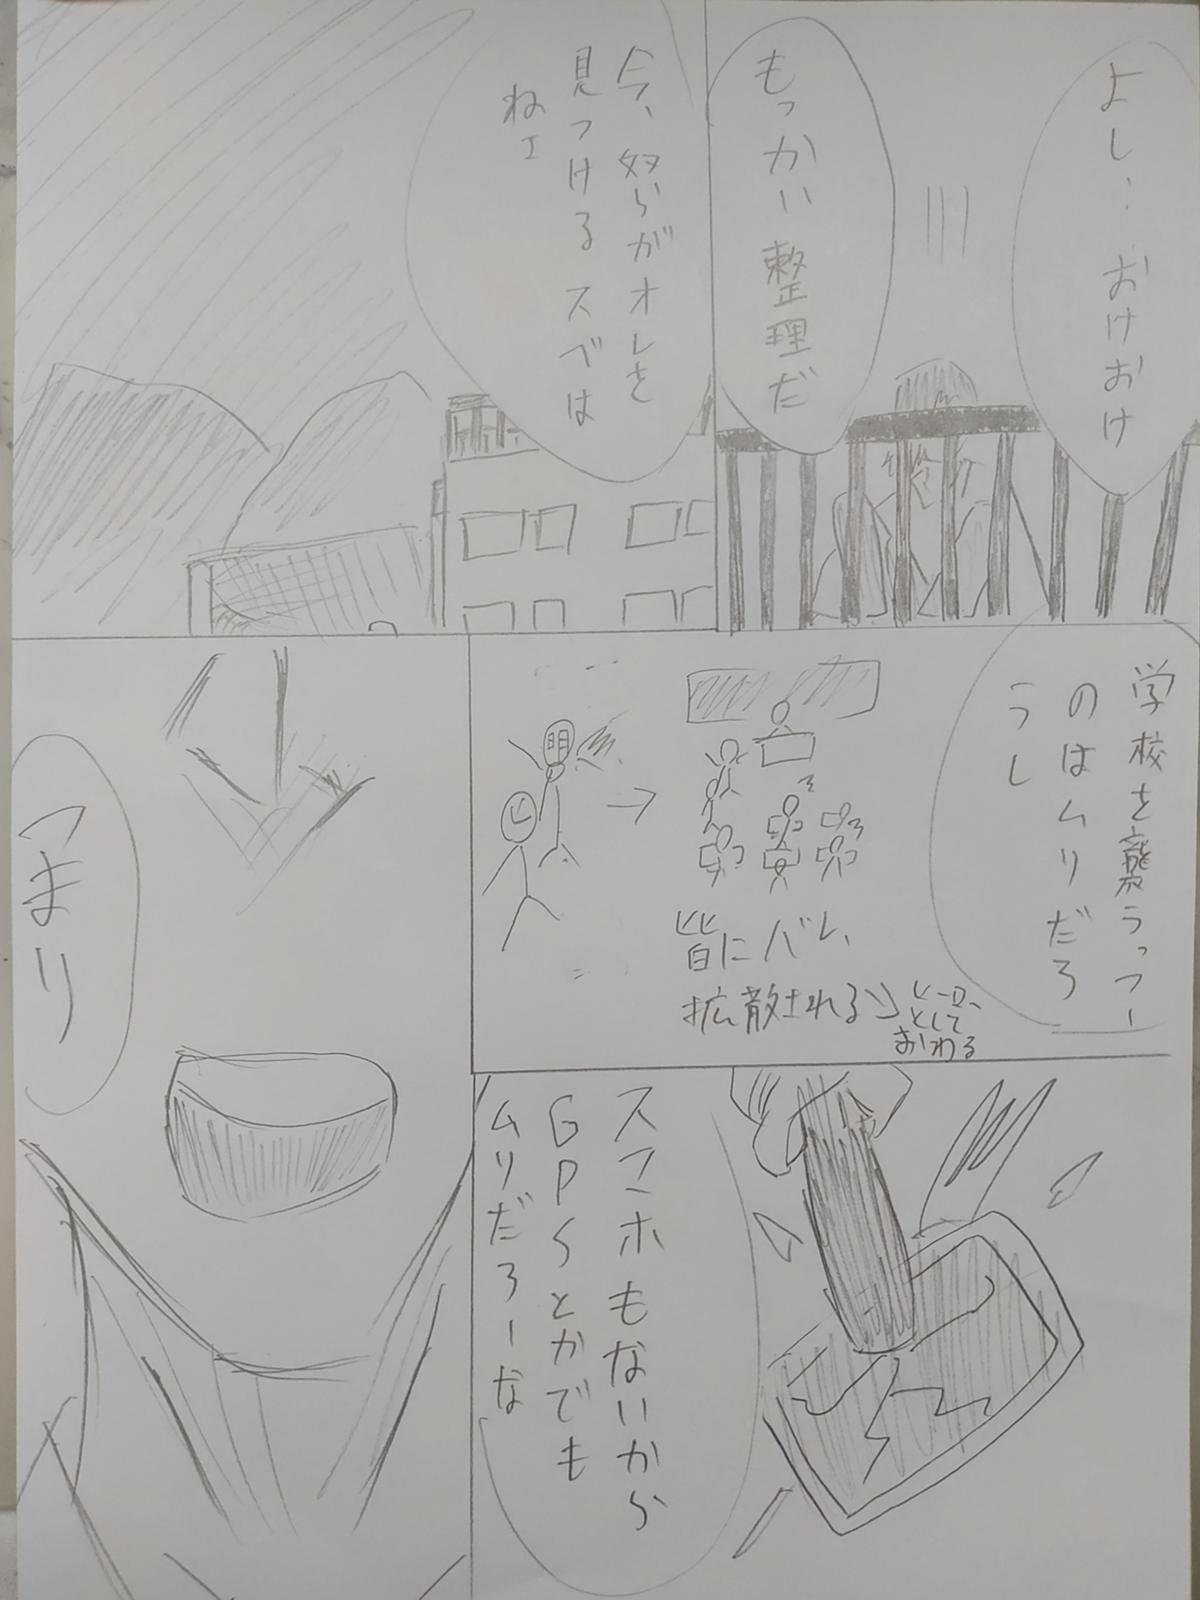 よし…おけおけ
もっかい整理だ
今、奴らがオレを
見つけるスベは
ねェ
学校を襲うっつー
のはムリだろ
うし
明
ヒ
皆にバレ、
拡散される
ヒーロー
として
おわる
スマホもないから
GPSとかでも
ムリだろーな
つまり